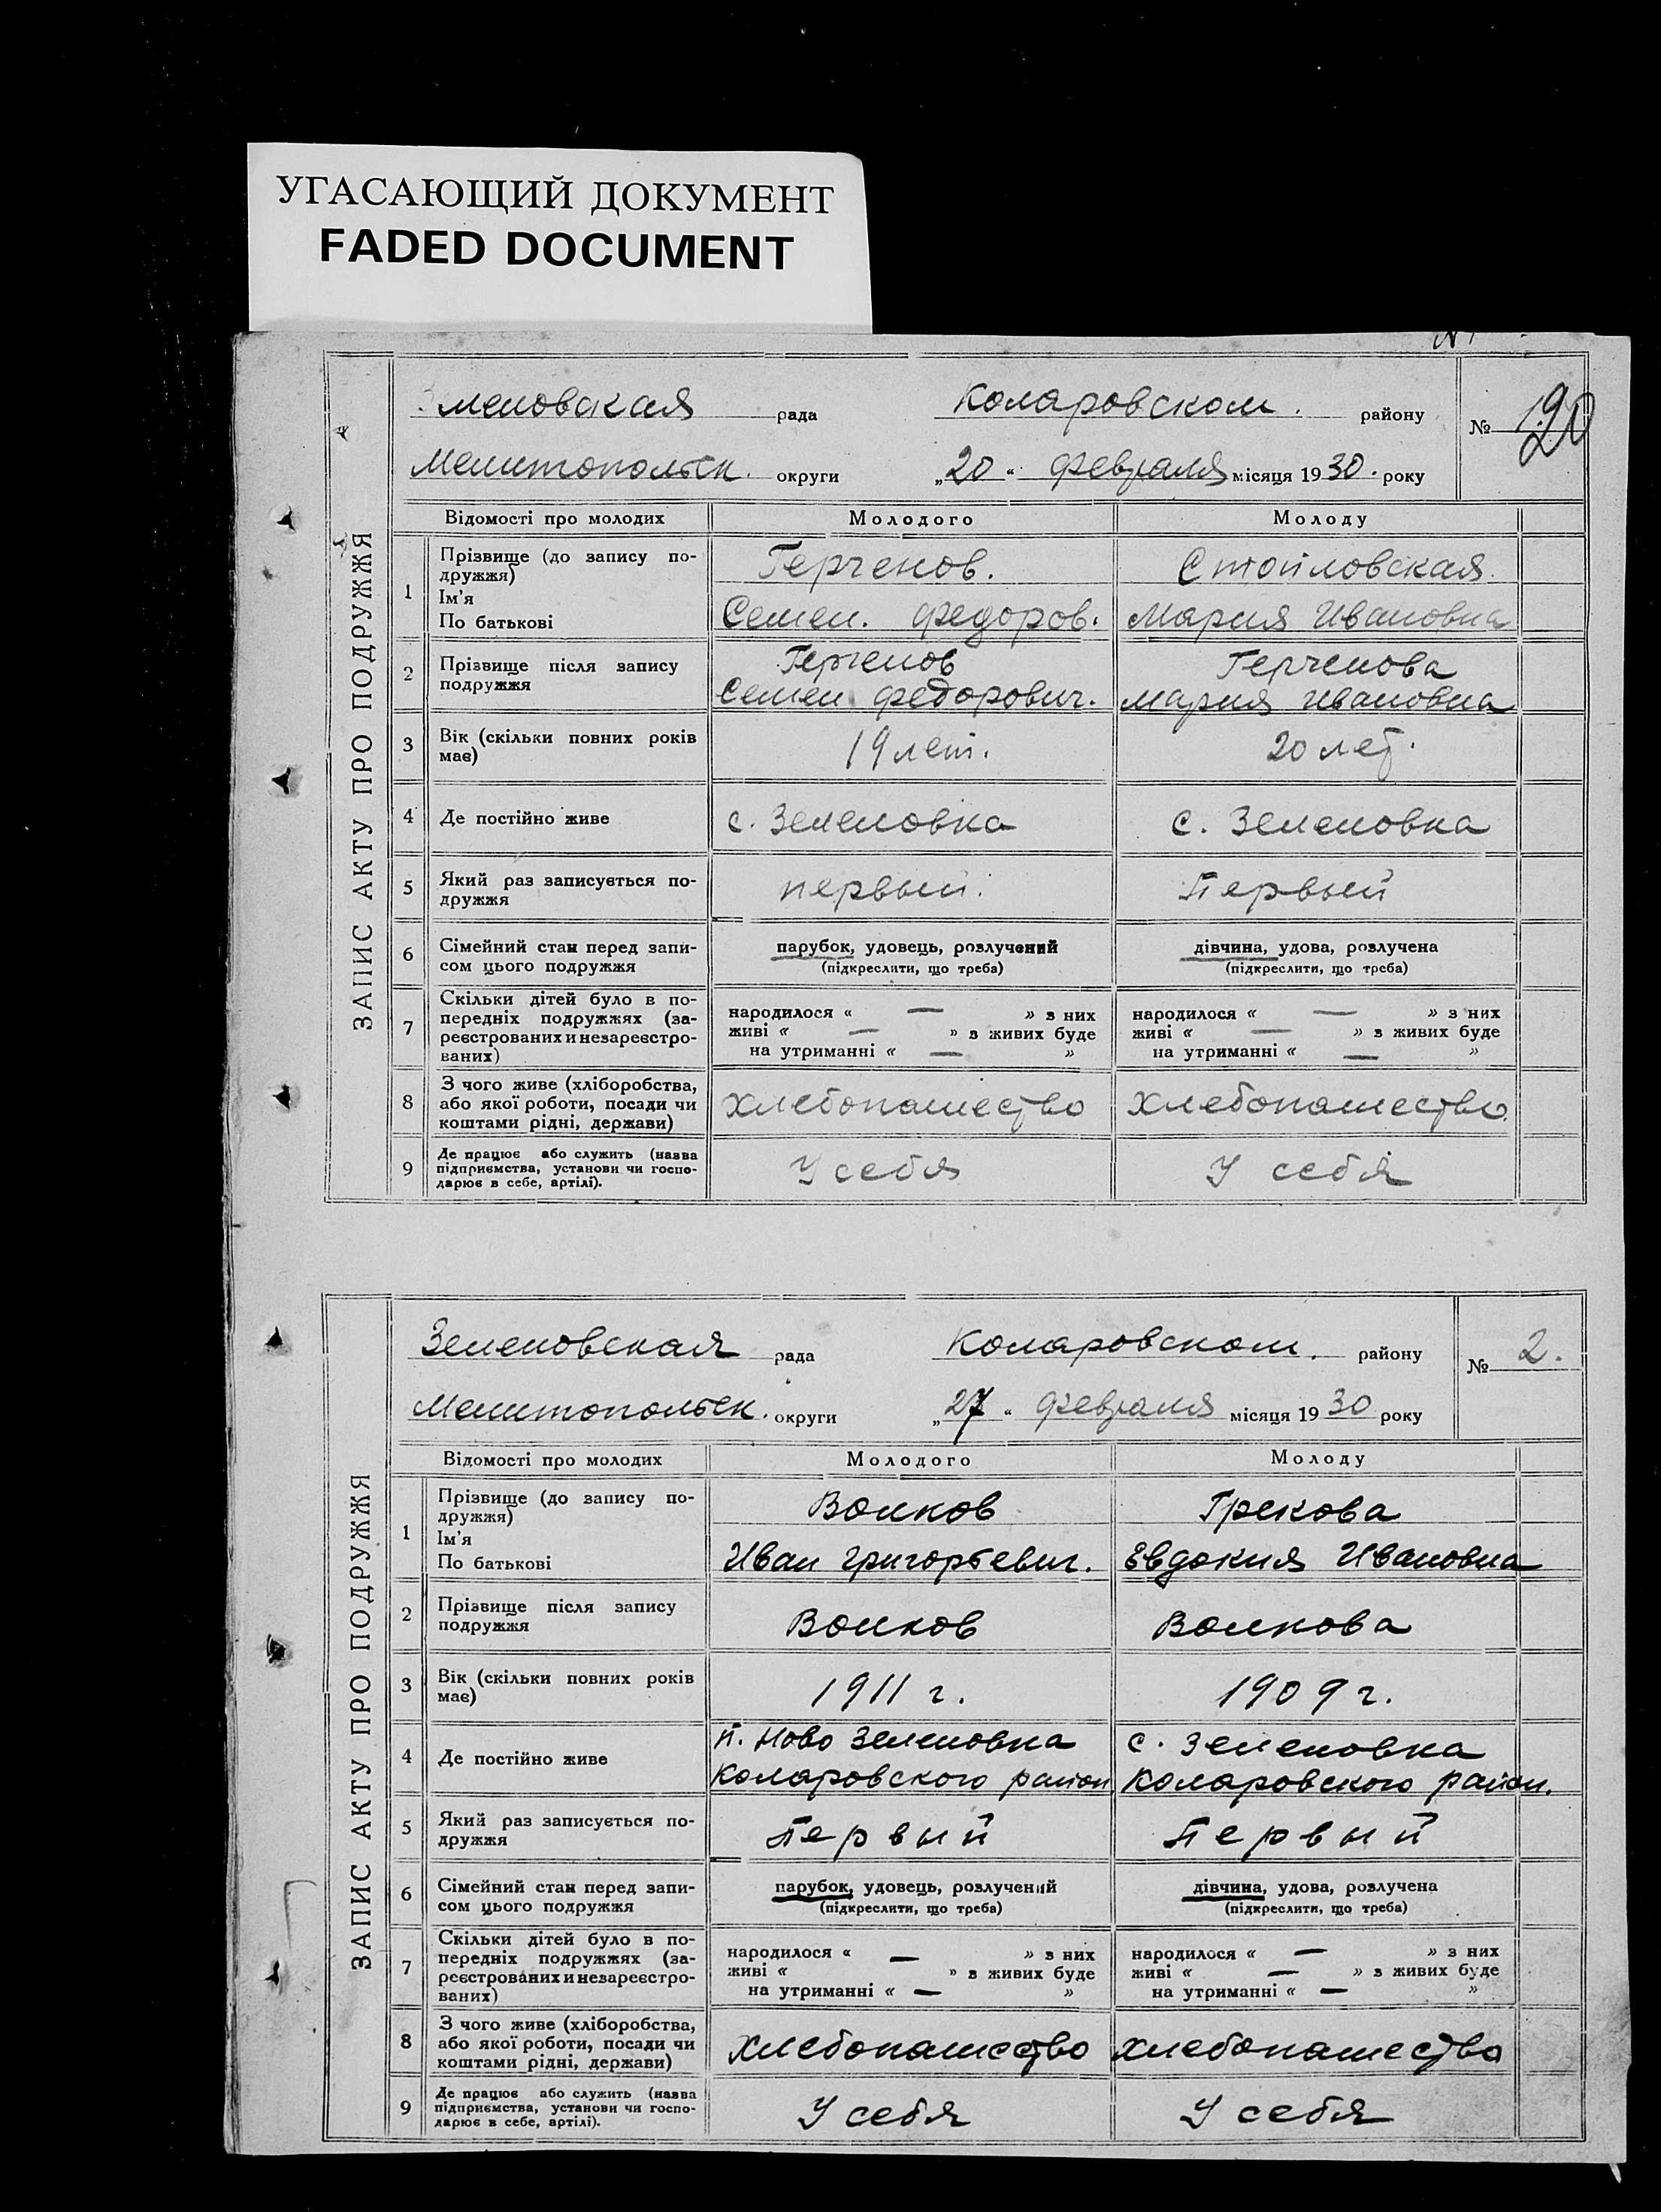 УГАСАЮЩИЙ ДОКУМЕНТ
FADED DOCUMENT
ЗАПИС АКТУ ПРО ПОДРУЖЖЯ
меновская рада Коларовском. району №
Мелитопольск. округи „20“ февраля місяця 1930. року
Відомості про молодих Молодого Молоду
1 Прізвище (до запису по-
дружжя)
Ім'я
По батькові
Герченов. Стоиловская
Семен. Федоров. Мария Ивановна
2 Прізвище після запису
подружжя
Герченов Герченова
Семен Федорович. Мария Ивановна
3 Вік (скільки повних років
має)
19 лет. 20 лет.
4 Де постійно живе с. Зеленовка с. Зеленовка
5 Який раз записується по-
дружжя
первый. Первый
6 Сімейний стан перед запи-
сом цього подружжя
парубок, удовець, розлучений дівчина, удова, розлучена
(підкреслити, що треба) (підкреслити, що треба)
7 Скільки дітей було в по-
передніх подружжях (за-
реєстрованих и незареєстро-
ваних)
народилося « — » з них народилося « — » з них
живі « — » з живих буде живі « — » з живих буде
на утриманні « — » на утриманні « — »
8 З чого живе (хліборобства,
або якої роботи, посади чи
коштами рідні, держави)
Хлебопашество Хлебопашество
9 Де працює або служить (назва
підприємства, установи чи госпо-
дарює в себе, артілі).
У себя У себя
ЗАПИС АКТУ ПРО ПОДРУЖЖЯ
Зеленовская рада Коларовском. району № 2.
Мелитопольск. округи „27“ февраля місяця 1930 року
Відомості про молодих Молодого Молоду
1 Прізвище (до запису по-
дружжя)
Ім'я
По батькові
Волков Грекова
Иван Григорьевич. Евдокия Ивановна
2 Прізвище після запису
подружжя
Волков Волкова
3 Вік (скільки повних років
має)
1911 г. 1909 г.
4 Де постійно живе
п. Ново Зеленовка с. Зеленовка
Коларовского район. Коларовского район.
5 Який раз записується по-
дружжя
Первый Первый
6 Сімейний стан перед запи-
сом цього подружжя
парубок, удовець, розлучений дівчина, удова, розлучена
(підкреслити, що треба) (підкреслити, що треба)
7 Скільки дітей було в по-
передніх подружжях (за-
реєстрованих и незареєстро-
ваних)
народилося « — » з них народилося « — » з них
живі « » з живих буде живі « — » з живих буде
на утриманні « — » на утриманні « — »
8 З чого живе (хліборобства,
або якої роботи, посади чи
коштами рідні, держави)
Хлебопашество Хлебопашество
9 Де працює або служить (назва
підприємства, установи чи госпо-
дарює в себе, артілі).
У себя У себя